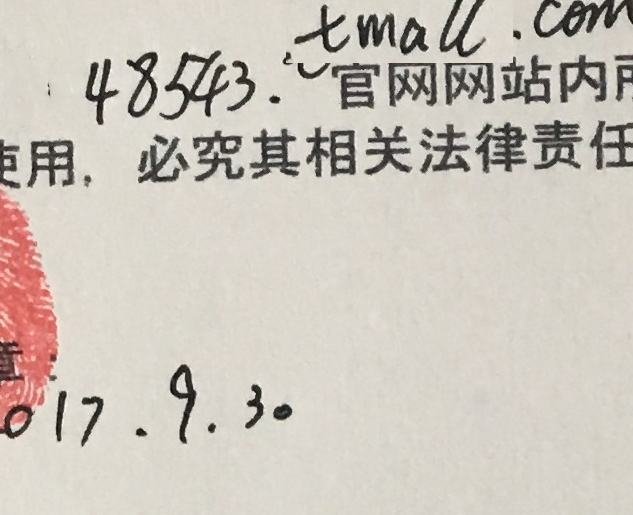 tmall.com
48543. 官网网站内所
使用，必究其相关法律责任
章：
2017.9.30